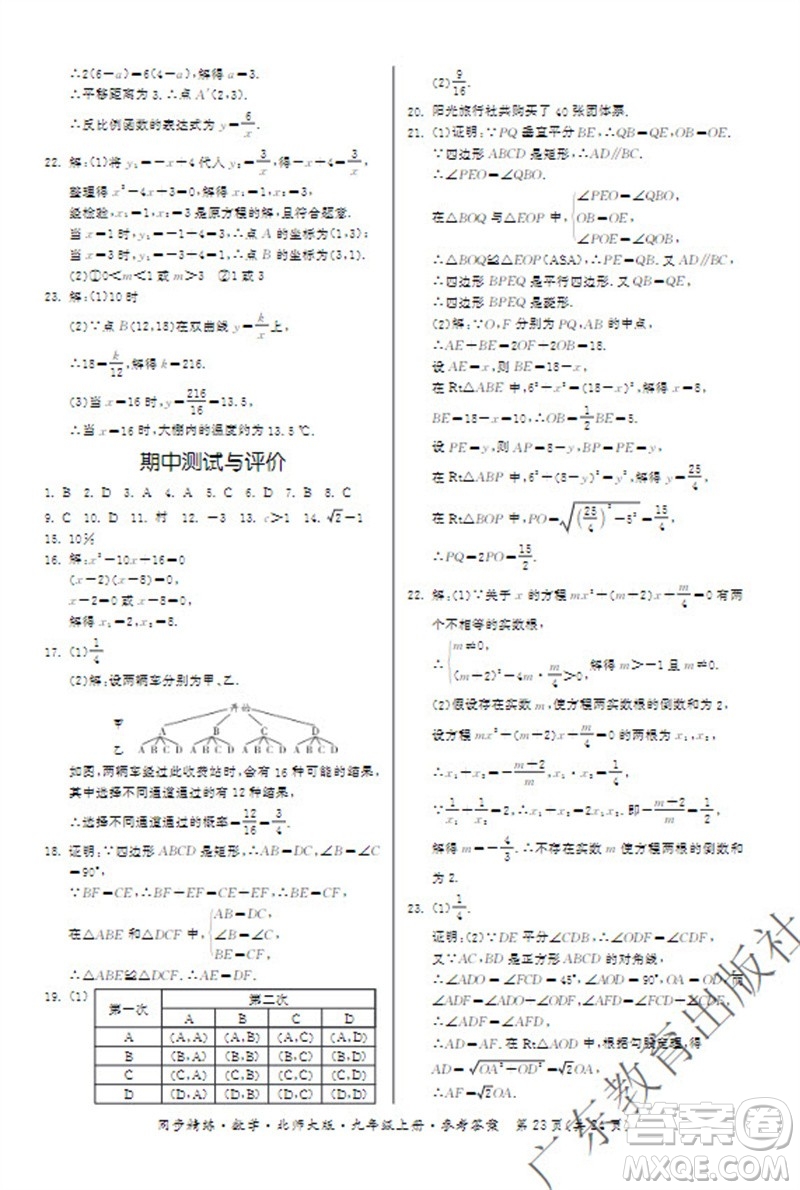 ∴2(6−a)=6(4−a),解得 a=3.
∴平移距离为 3.∴点 A′(2,3).
∴反比例函数的表达式为 y=6/x.
22. 解:(1)将 y₁=−x+4代入 y₂=3/x,得−x+4=3/x,
整理得 x²−4x+3=0,解得 x₁=1,x₂=3,
经检验,x₁=1,x₂=3是原方程的解,且符合题意.
当 x=1时,y₁=−1+4=3,∴点 A 的坐标为(1,3);
当 x=3时,y₁=−3+4=1,∴点 B 的坐标为(3,1).
(2)①0<m<1或m>3 ②1或3
23. 解:(1)10时
(2)∵点B(12,18)在双曲线 y=k/x上,
∴18=k/12,解得 k=216.
(3)当 x=16时,y=216/16=13.5,
∴当 x=16时,大棚内的温度约为13.5℃.
期中测试与评价
1. B 2. D 3. A 4. A 5. C 6. B 7. B 8. C
9. C 10. D 11. 村 12. −3 13. c>1 14. √2−1
15. 10%
16. 解:x²−10x+16=0
(x−2)(x−8)=0,
x−2=0或x−8=0,
解得 x₁=2,x₂=8.
17. (1)1/4
(2)解:设两辆车分别为甲、乙.
开始
甲 A B C D
乙 A B C D A B C D A B C D A B C D
如图,两辆车经过此收费站时,会有16种可能的结果,
其中选择不同通道通过的有12种结果,
∴选择不同通道通过的概率=12/16=3/4.
18. 证明:∵四边形 ABCD 是矩形,∴AB=DC,∠B=∠C
=90°,
∵BF=CE,∴BF−EF=CE−EF,∴BE=CF,
在△ABE 和△DCF 中,{AB=DC,
∠B=∠C,
BE=CF,
∴△ABE≌△DCF.∴AE=DF.
19. (1)
第一次 第二次
A B C D
A (A,A) (A,B) (A,C) (A,D)
B (B,A) (B,B) (B,C) (B,D)
C (C,A) (C,B) (C,C) (C,D)
D (D,A) (D,B) (D,C) (D,D)
(2)9/16.
20. 阳光旅行社共购买了 40 张团体票.
21. (1)证明:∵PQ 垂直平分 BE,∴QB=QE,OB=OE.
∵四边形 ABCD 是矩形,∴AD//BC.
∴∠PEO=∠QBO.
在△BOQ 与△EOP 中,{∠PEO=∠QBO,
OB=OE,
∠POE=∠QOB,
∴△BOQ≌△EOP(ASA),∴PE=QB.又 AD//BC,
∴四边形 BPEQ 是平行四边形.又 QB=QE,
∴四边形 BPEQ 是菱形.
(2)解:∵O,F 分别为 PQ,AB 的中点,
∴AE+BE=2OF+2OB=18.
设 AE=x,则 BE=18−x,
在 Rt△ABE 中,6²+x²=(18−x)²,解得 x=8,
BE=18−x=10,∴OB=1/2BE=5.
设 PE=y,则 AP=8−y,BP=PE=y,
在 Rt△ABP 中,6²+(8−y)²=y²,解得 y=25/4,
在 Rt△BOP 中,PO=√((25/4)²−5²)=15/4,
∴PQ=2PO=15/2.
22. 解:(1)∵关于 x 的方程 mx²+(m+2)x+m/4=0有两
个不相等的实数根,
∴{m≠0,
(m+2)²−4m·m/4>0,解得 m>−1且 m≠0.
(2)假设存在实数 m,使方程两实数根的倒数和为 2,
设方程 mx²+(m+2)x+m/4=0的两根为 x₁,x₂,
∴x₁+x₂=−(m+2)/m,x₁·x₂=1/4.
∵1/x₁+1/x₂=2,∴x₁+x₂=2x₁x₂.即−(m+2)/m=1/2,
解得 m=−4/3.∴不存在实数 m,使方程两根的倒数和
为 2.
23. (1)1/4.
证明:(2)∵DE 平分∠CDB,∴∠ODF=∠CDF,
又∵AC,BD 是正方形 ABCD 的对角线,
∴∠ADO=∠FCD=45°,∠AOD=90°,OA=OD,而
∠ADF=∠ADO+∠ODF,∠AFD=∠FCD+∠CDF,
∴∠ADF=∠AFD,
∴AD=AF.在 Rt△AOD 中,根据勾股定理,得
AD=√(OA²+OD²)=√2OA,
∴AF=√2OA.
同步精练·数学·北师大版·九年级上册·参考答案 第 23 页(共 24 页)
广东教育出版社
答案圈
MXQE.COM